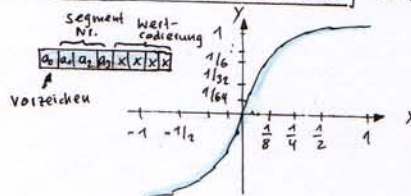 segment Wert-
Nr. codierung
a₀ a₁ a₂ a₃ x x x x
Vorzeichen
y
1
1/6
1/32
1/64
-1 -1/2 1/8 1/4 1/2 1 x